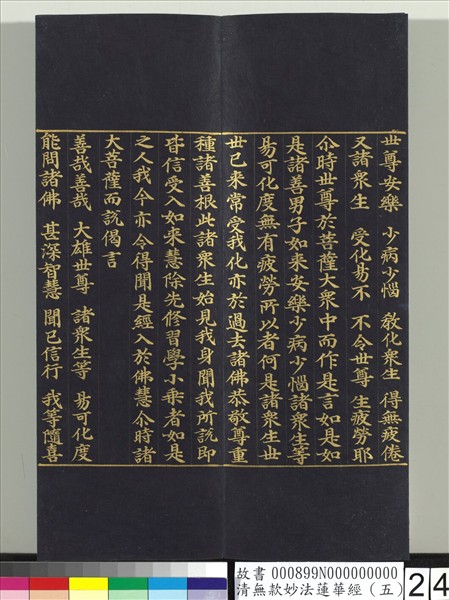 世尊安樂 少病少惱 教化衆生 得無疲倦
又諸衆生 受化易不 不令世尊 生疲勞耶
尒時世尊於菩薩大衆中而作是言如是如
是諸善男子如来安樂少病少惱諸衆生等
易可化度無有疲勞所以者何是諸衆生世
世已来常受我化亦於過去諸佛恭敬尊重
種諸善根此諸衆生始見我身聞我所說即
皆信受入如来慧除先修習學小乘者如是
之人我今亦令得聞是經入於佛慧尒時諸
大菩薩而說偈言
善哉善哉 大雄世尊 諸衆生等 易可化度
能問諸佛 甚深智慧 聞已信行 我等隨喜
故書 000899N000000000
清無款妙法蓮華經（五）
24